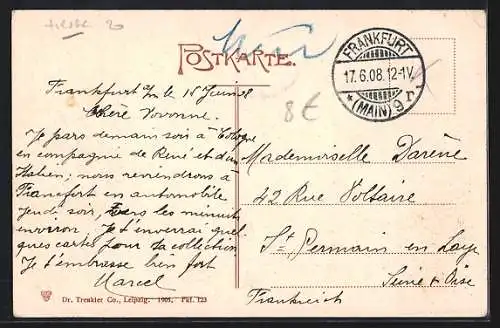 POSTKARTE.
FRANKFURT
17.6.08. 12-1V.
* (MAIN) 9 r
8€
Frankfurt s/m le 15 Juin 08
Chère Yvonne.
Je pars demain soir à Cologne
en compagnie de René et d'un
Italien; nous reviendrons à
Francfort en automobile
jeudi soir, vers les minuit
environ. Je t'enverrai quel
ques cartes pour ta collection
Je t'embrasse bien fort
Marcel
Mademoiselle Darène
42 Rue Voltaire
St Germain en Laye
Seine & Oise
Frankreich
Dr. Trenkler Co., Leipzig. 1905. Fkf. 123